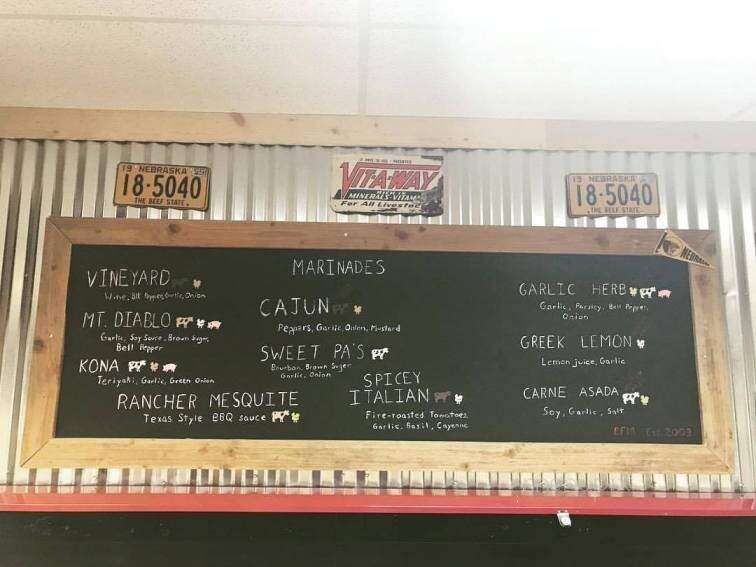 19 NEBRASKA
18-5040
THE BEEF STATE
VIT-A-WAY
MINERALS-VITAMI
For All Livestoc
19 NEBRASKA
18-5040
THE BEEF STATE
NEBRA
MARINADES
VINEYARD
Wine, Blk Pepper, Garlic, Onion
MT. DIABLO
Garlic, Soy Sauce, Brown Sugr,
Bell Pepper
KONA
Teriyaki, Garlic, Green Onion
RANCHER MESQUITE
Texas Style BBQ sauce
CAJUN
Peppers, Garlic, Onion, Mustard
SWEET PA'S
Bourbon, Brown Sugar
Garlic, Onion
SPICEY
ITALIAN
Fire-roasted Tomatoes,
Garlic, Basil, Cayenne
GARLIC HERB
Garlic, Parsley, Bell Pepper,
Onion
GREEK LEMON
Lemon juice, Garlic
CARNE ASADA
Soy, Garlic, Salt
EFM Est. 2003